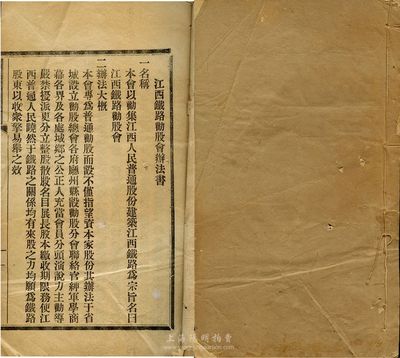 江西鐵路勸股會辦法書
一名稱
本會以勸集江西人民普通股份建築江西鐵路爲宗旨名曰
江西鐵路勸股會
二辦法大概
本會專爲普通勸股而設不僅指望資本家股份其辦法于省
城設立勸股總會各府廳州縣設勸股分會聯絡官紳軍學商
各界及各處城鄉之公正人充當會員分頭演說力主勸導
嚴禁擾派更分立整股散股名目展長股本繳收期限務使江
西普通人民曉然于鐵路之關係均有來股之力均願爲鐵路
股東以收衆擎易舉之效
上海陽明拍賣